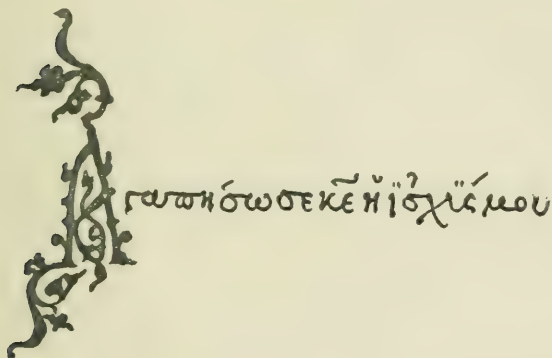 Ἀγαπήσω σε κ̅ε̅ ἡ ἰσχύς μου